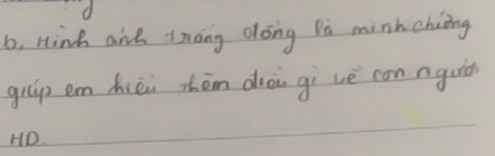 b, Hình ảnh trong đồng là minh chứng
giúp em hiểu thêm điều gì về con người
HD.